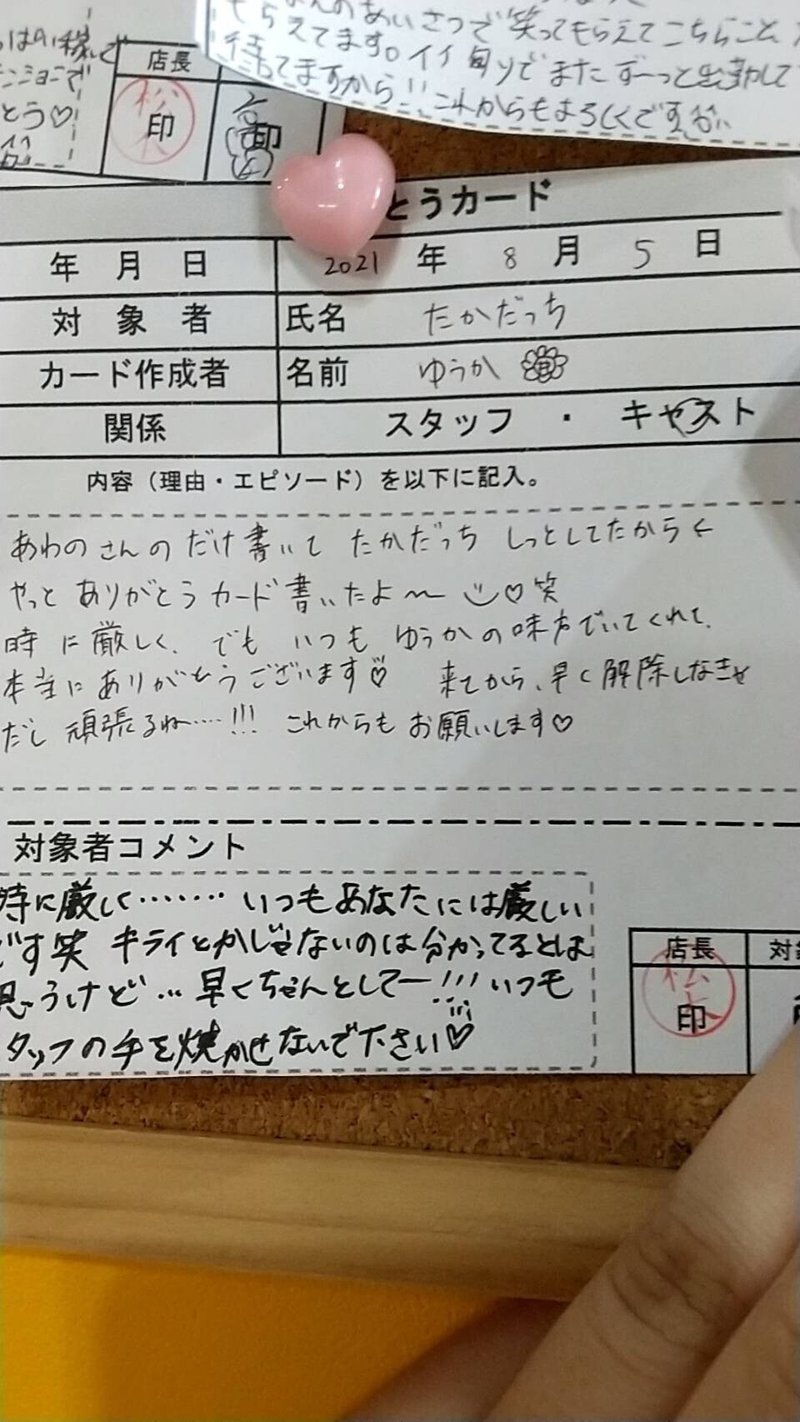 店長
印
印
のあいさつで笑ってもらえてこちらこそ
もらえてます。イイ匂いでまたずーっと出勤して
待ってますから!!これからもよろしくです
とうカード
年 月 日 2021 年 8 月 5 日
対 象 者 氏名 たかだっち
カード作成者 名前 ゆうか
関係 スタッフ ・ キャスト
内容（理由・エピソード）を以下に記入。
あわのさんのだけ書いて たかだっち しっとしてたから←
やっと ありがとうカード書いたよ〜 ♡笑
時に厳しく、でも いつも ゆうかの味方でいてくれて、
本当にありがとうございます♡ 来てから、早く解除しなきゃ
だし 頑張るね……!!! これからもお願いします♡
対象者コメント
時に厳しく……… いつもあなたには厳しい
です笑 キライとかじゃないのは分かってるとは
思うけど… 早くちゃんとしてー!!! いつも
タッフの手を焼かせないで下さい♡
店長 対象
印